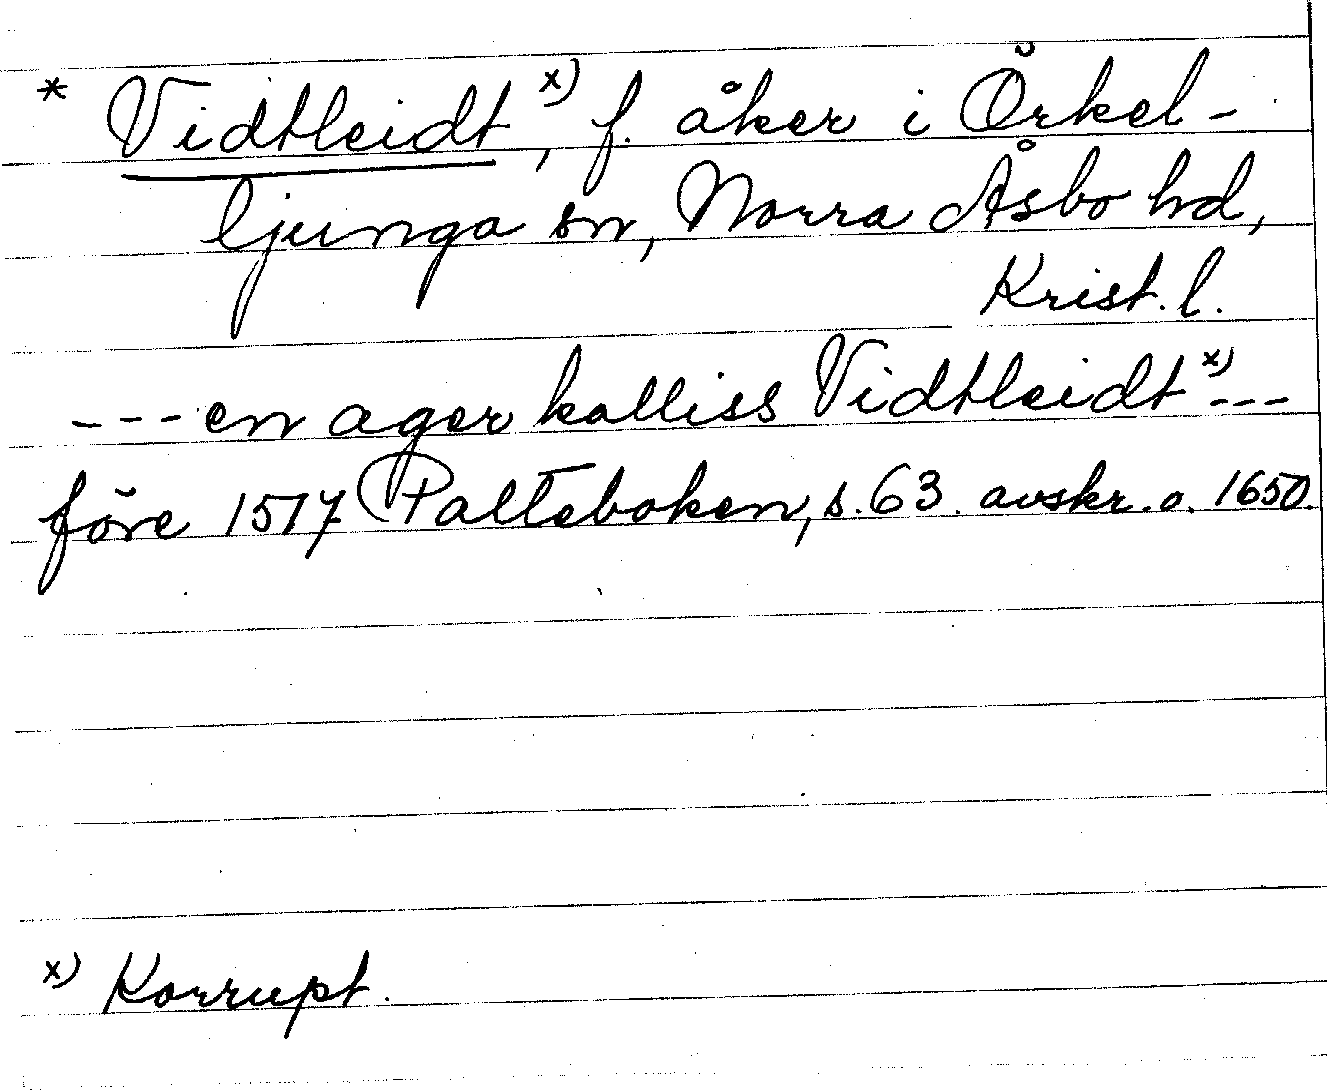 * Vidtleidt x), f. åker i Örkel-
ljunga sn, Norra Åsbo hd,
Krist. l.
--- en ager kalliss Vidtleidt x) ---
före 1517 Palteboken, s. 63. avskr. o. 1650.
x) Korrupt.